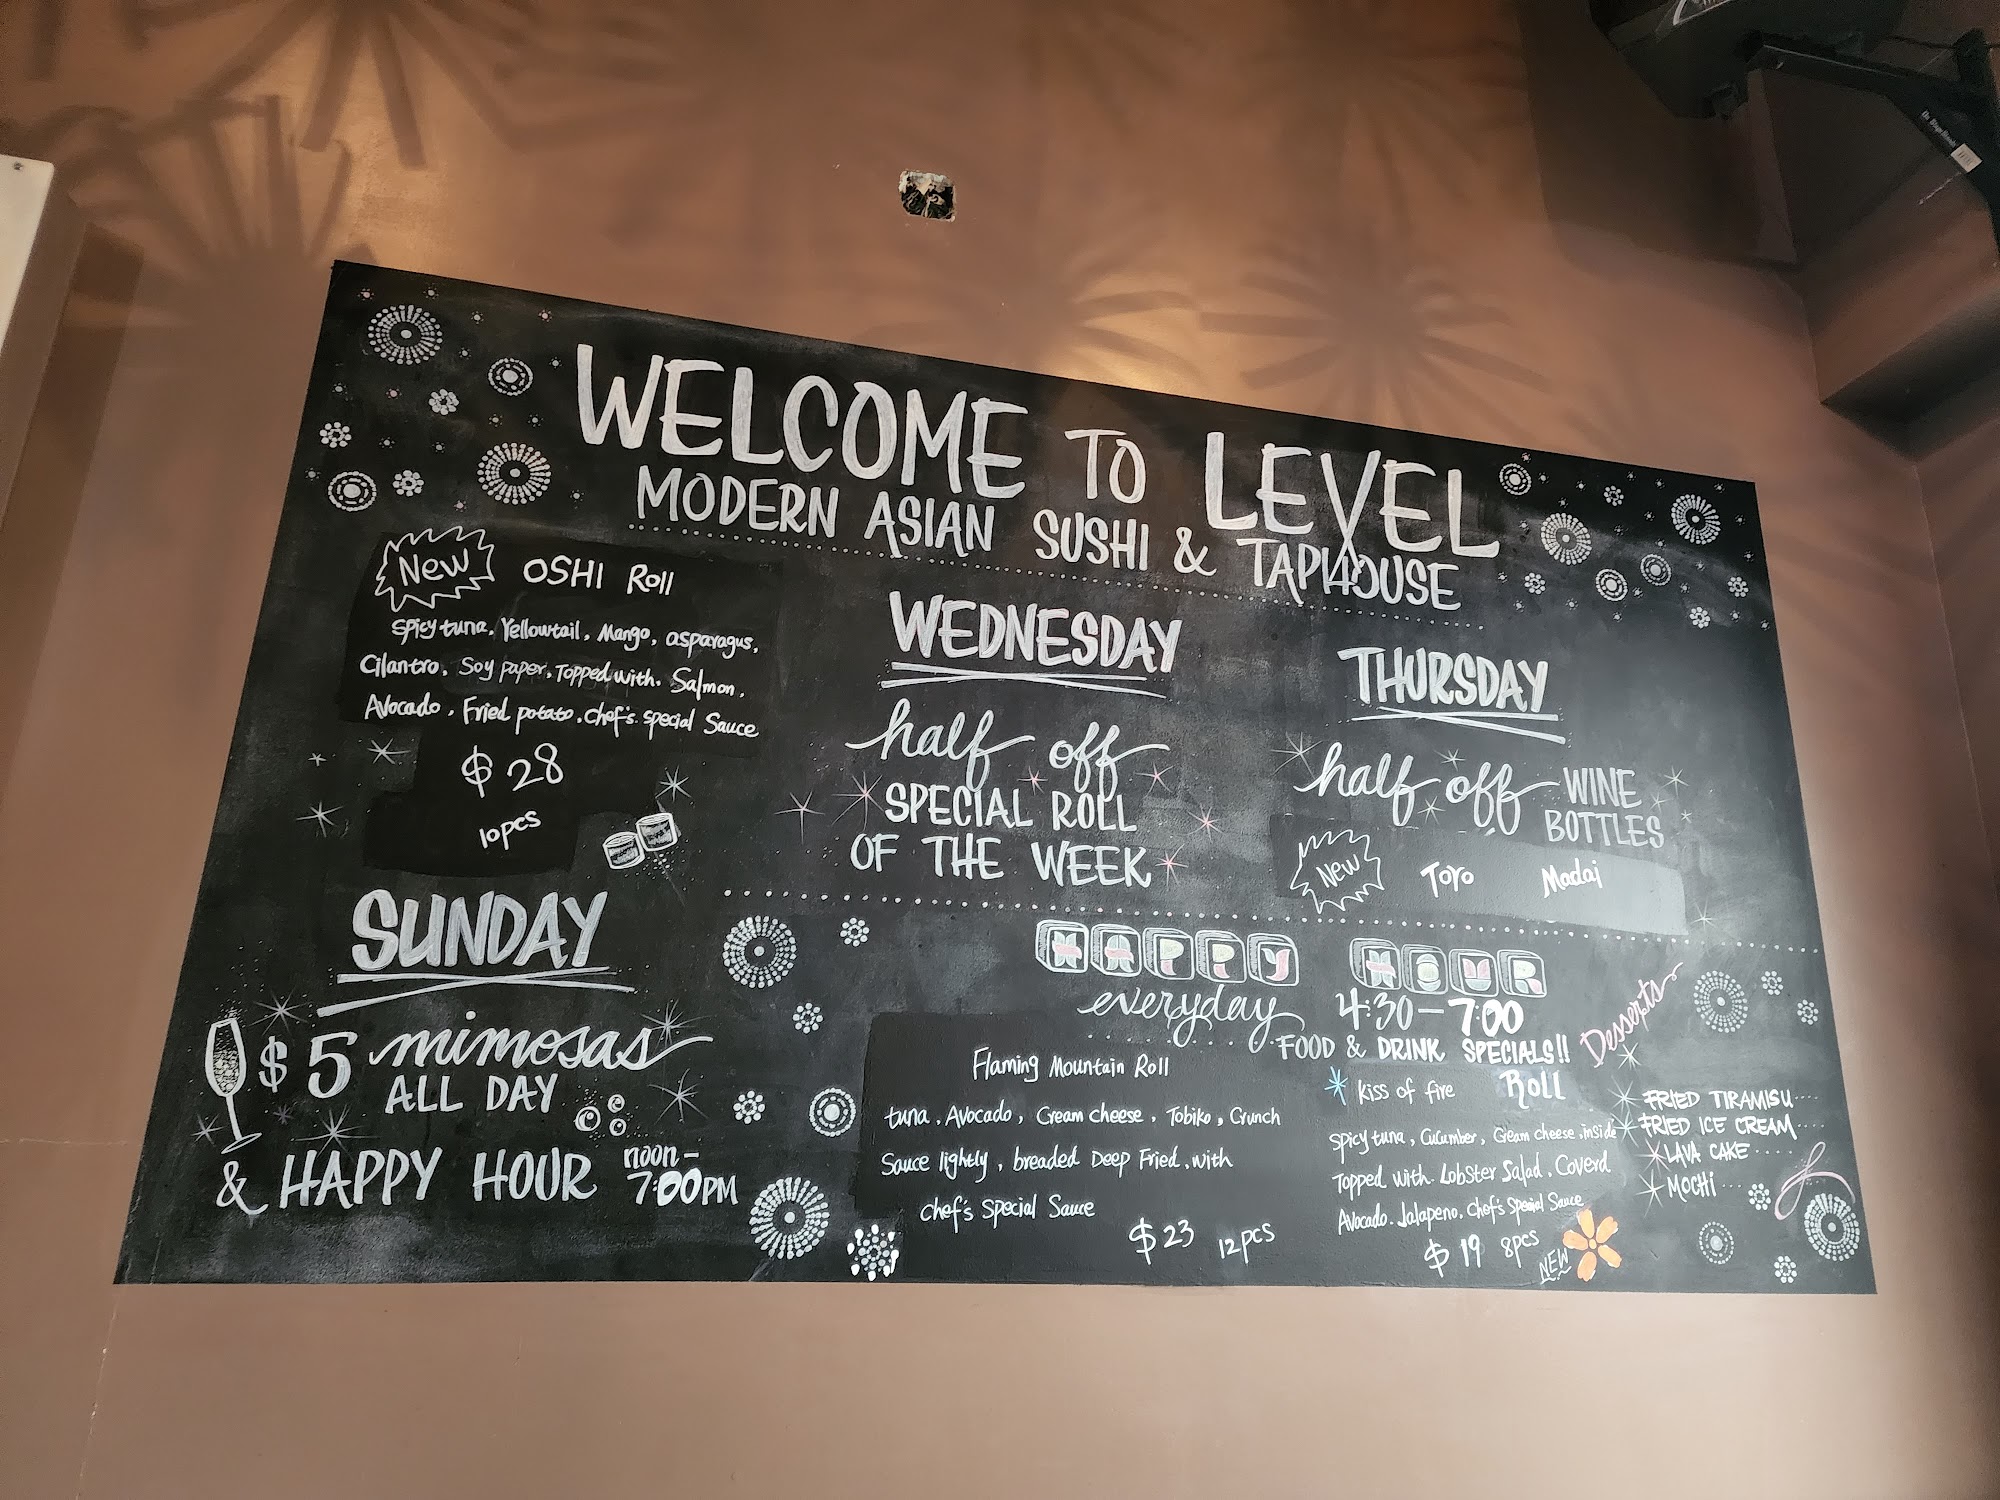 WELCOME TO LEVEL
MODERN ASIAN SUSHI & TAPHOUSE
New OSHI Roll
Spicy tuna, Yellowtail, Mango, asparagus,
Cilantro, Soy paper, Topped with, Salmon,
Avocado, Fried potato, Chef's special Sauce
$28
10pcs
WEDNESDAY
half off
SPECIAL ROLL
OF THE WEEK
THURSDAY
half off WINE
BOTTLES
New Toro Madai
SUNDAY
$5 mimosas
ALL DAY
& HAPPY HOUR noon-
7:00PM
HAPPY HOUR
everyday 4:30-7:00
FOOD & DRINK SPECIALS!!
Flaming Mountain Roll
tuna, Avocado, Cream cheese, Tobiko, Crunch
Sauce lightly, breaded Deep Fried, with
Chef's Special Sauce
$23 12pcs
Kiss of fire Roll
Spicy tuna, Cucumber, Cream cheese, inside
Topped with Lobster Salad, Coverd
Avocado, Jalapeno, Chef's Special Sauce
$19 8pcs NEW
Desserts
FRIED TIRAMISU
FRIED ICE CREAM
LAVA CAKE
MOCHI